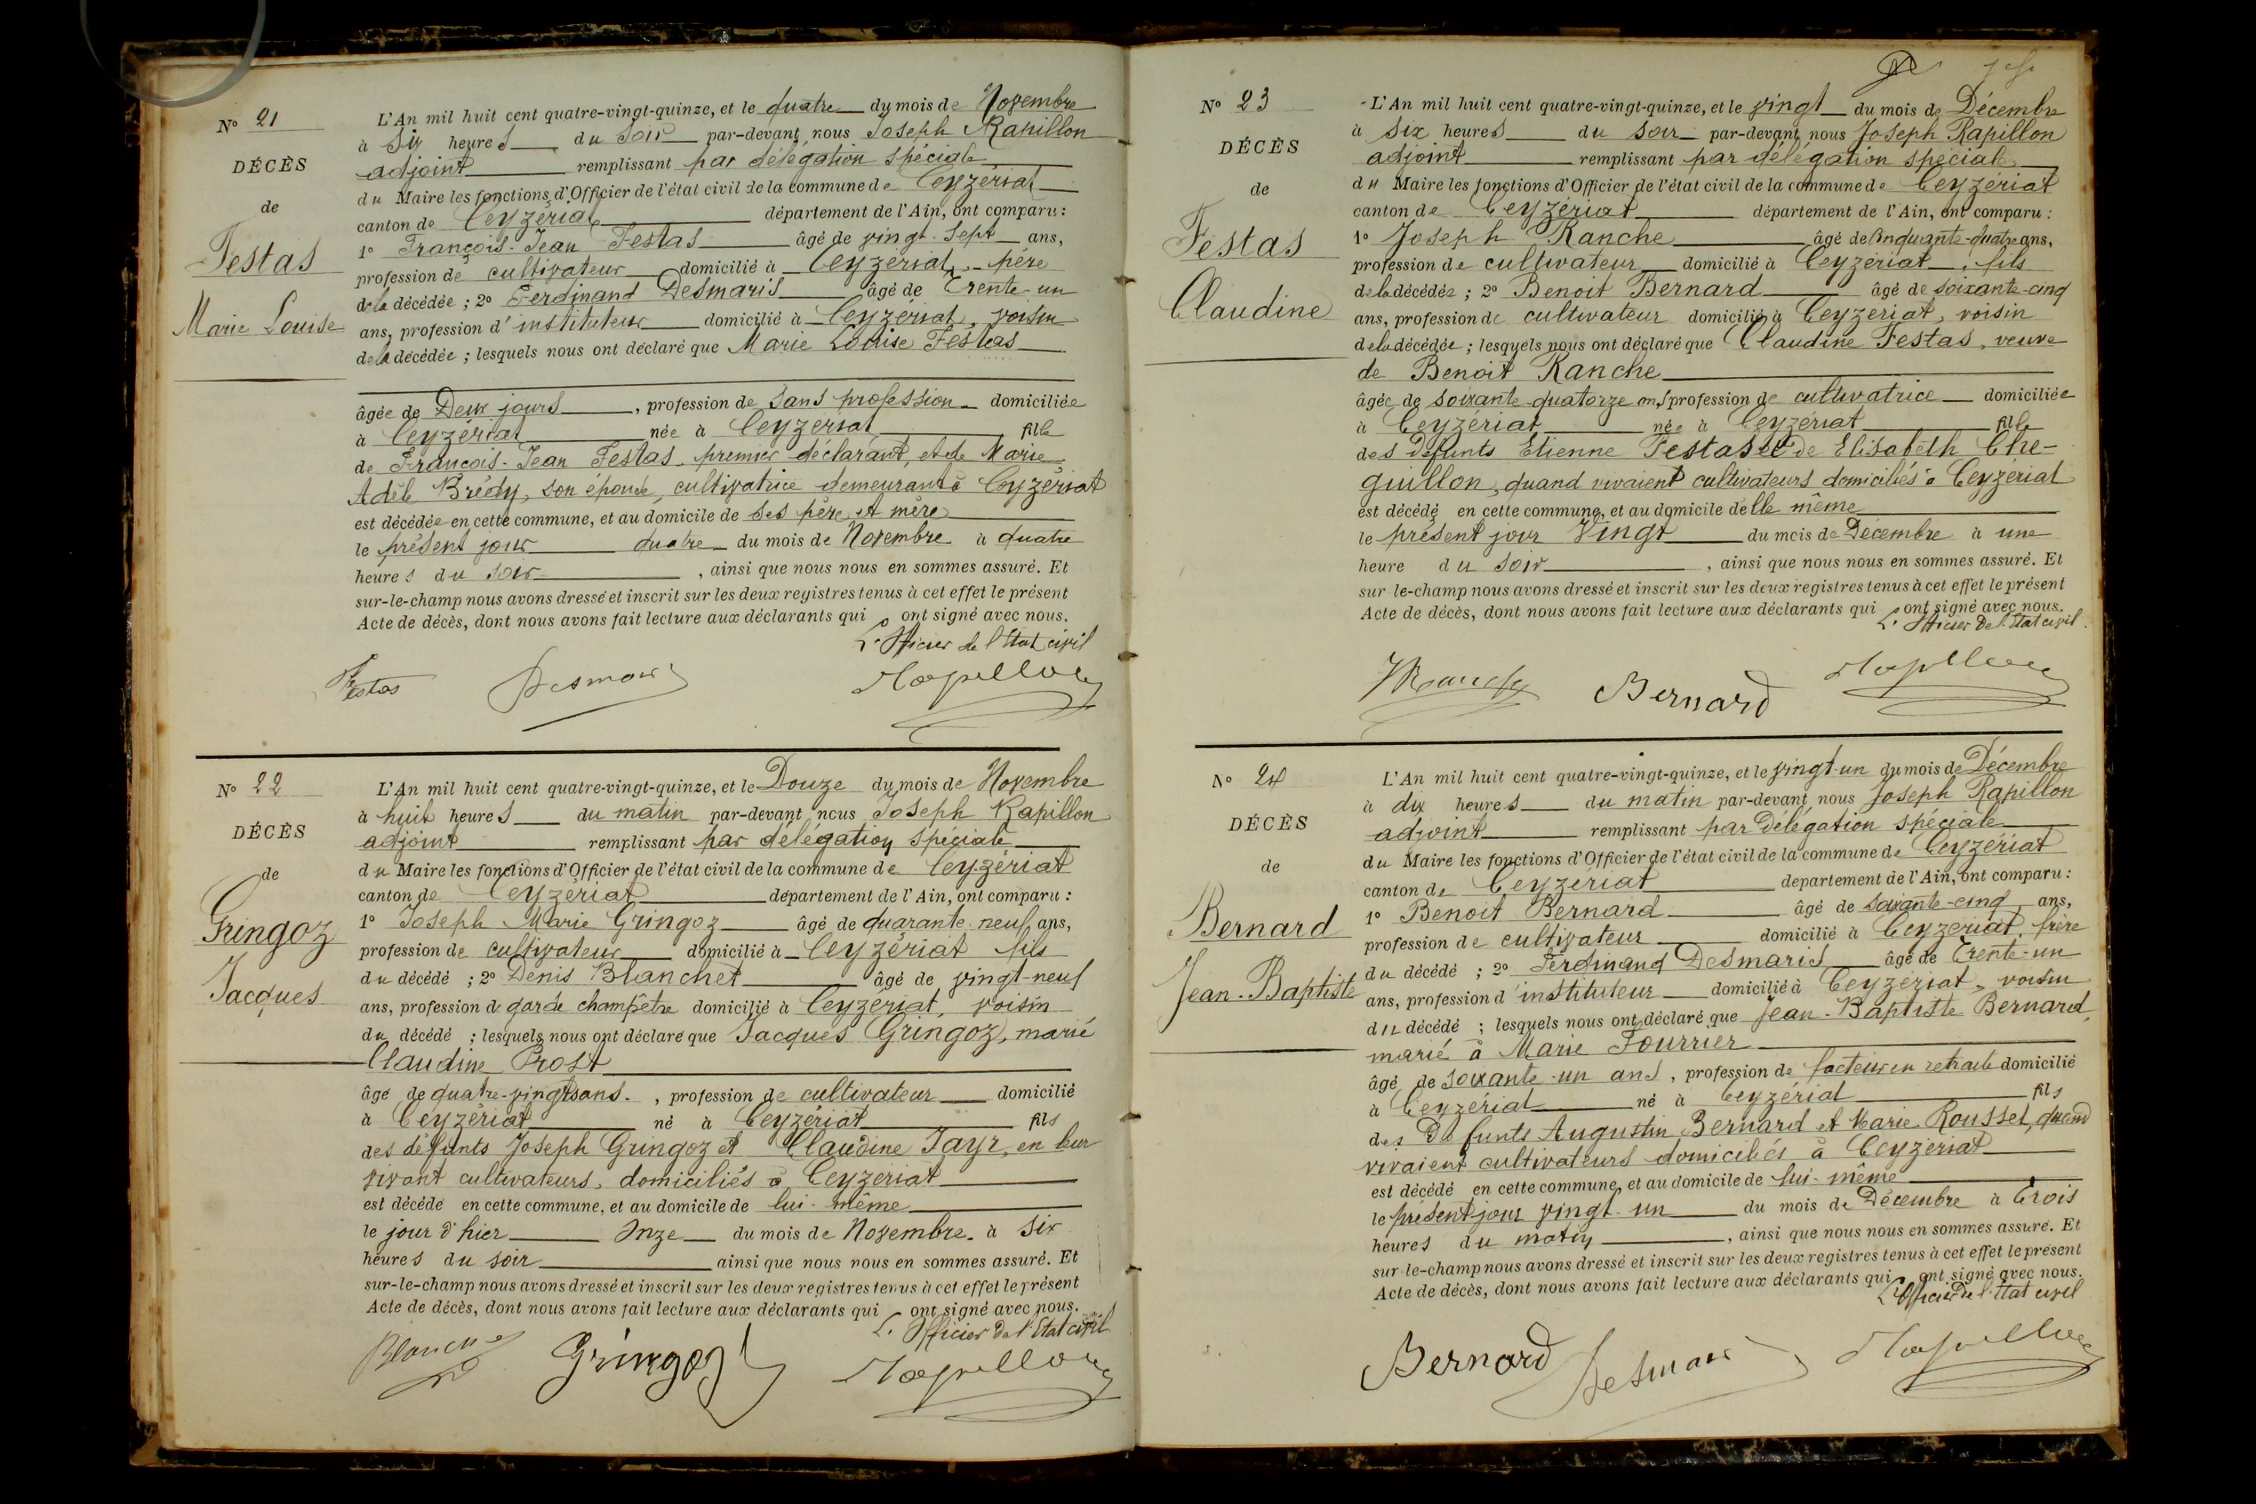 N° 21
DÉCÈS
de
Festas
Marie Louise
L'An mil huit cent quatre-vingt-quinze, et le quatre du mois de Novembre
à six heures du soir par-devant nous Joseph Rapillon
adjoint remplissant par délégation spéciale
du Maire les fonctions d'Officier de l'état civil de la commune de Ceyzériat
canton de Ceyzériat département de l'Ain, ont comparu :
1° François-Jean Festas âgé de vingt-sept ans,
profession de cultivateur domicilié à Ceyzériat, père
de la décédée ; 2° Ferdinand Desmaris âgé de Trente-un
ans, profession d'instituteur domicilié à Ceyzériat, voisin
de la décédée ; lesquels nous ont déclaré que Marie Louise Festas
âgée de Deux jours, profession de sans profession domiciliée
à Ceyzériat née à Ceyzériat fille
de François-Jean Festas, premier déclarant, et de Marie
Adèle Brédy, son épouse, cultivatrice demeurant à Ceyzériat
est décédée en cette commune, et au domicile de ses père et mère
le présent jour quatre du mois de Novembre à quatre
heures du soir, ainsi que nous nous en sommes assuré. Et
sur-le-champ nous avons dressé et inscrit sur les deux registres tenus à cet effet le présent
Acte de décès, dont nous avons fait lecture aux déclarants qui ont signé avec nous.
L'Officier de l'Etat civil
Festas Desmaris Rapillon
N° 22
DÉCÈS
de
Gringoz
Jacques
L'An mil huit cent quatre-vingt-quinze, et le Douze du mois de Novembre
à huit heures du matin par-devant nous Joseph Rapillon
adjoint remplissant par délégation spéciale
du Maire les fonctions d'Officier de l'état civil de la commune de Ceyzériat
canton de Ceyzériat département de l'Ain, ont comparu :
1° Joseph Marie Gringoz âgé de quarante-neuf ans,
profession de cultivateur domicilié à Ceyzériat fils
du décédé ; 2° Denis Blanchet âgé de vingt-neuf
ans, profession de garde champêtre domicilié à Ceyzériat, voisin
du décédé ; lesquels nous ont déclaré que Jacques Gringoz, marié
Claudine Prost
âgé de quatre-vingts ans, profession de cultivateur domicilié
à Ceyzériat né à Ceyzériat fils
des défunts Joseph Gringoz et Claudine Jayr, en leur
vivant cultivateurs, domiciliés à Ceyzeriat
est décédé en cette commune, et au domicile de lui-même
le jour d'hier Onze du mois de Novembre à six
heures du soir ainsi que nous nous en sommes assuré. Et
sur-le-champ nous avons dressé et inscrit sur les deux registres tenus à cet effet le présent
Acte de décès, dont nous avons fait lecture aux déclarants qui ont signé avec nous.
L'Officier de l'Etat civil
Blanchet Gringoz Rapillon
N° 23
DÉCÈS
de
Festas
Claudine
L'An mil huit cent quatre-vingt-quinze, et le vingt du mois de Décembre
à six heures du soir par-devant nous Joseph Rapillon
adjoint remplissant par délégation spéciale
du Maire les fonctions d'Officier de l'état civil de la commune de Ceyzériat
canton de Ceyzériat département de l'Ain, ont comparu :
1° Joseph Ranche âgé de Cinquante-quatre ans,
profession de cultivateur domicilié à Ceyzériat, fils
de la décédée ; 2° Benoit Bernard âgé de soixante-cinq
ans, profession de cultivateur domicilié à Ceyzériat, voisin
de la décédée ; lesquels nous ont déclaré que Claudine Festas, veuve
de Benoit Ranche
âgée de soixante-quatorze ans, profession de cultivatrice domiciliée
à Ceyzériat née à Ceyzériat fille
des Défunts Etienne Festas et de Elisabeth Che-
guillon, quand vivaient cultivateurs domiciliés à Ceyzériat
est décédé en cette commune, et au domicile d'elle même
le présent jour Vingt du mois de Décembre à une
heure du soir, ainsi que nous nous en sommes assuré. Et
sur-le-champ nous avons dressé et inscrit sur les deux registres tenus à cet effet le présent
Acte de décès, dont nous avons fait lecture aux déclarants qui ont signé avec nous.
L'Officier De l'Etat civil
JRanche Bernard Rapillon
N° 24
DÉCÈS
de
Bernard
Jean-Baptiste
L'An mil huit cent quatre-vingt-quinze, et le vingt-un du mois de Décembre
à dix heures du matin par-devant nous Joseph Rapillon
adjoint remplissant par Délégation spéciale
du Maire les fonctions d'Officier de l'état civil de la commune de Ceyzériat
canton de Ceyzériat departement de l'Ain, ont comparu :
1° Benoit Bernard âgé de soixante-cinq ans,
profession de cultivateur domicilié à Ceyzériat, frère
du décédé ; 2° Ferdinand Desmaris âgé de Trente-un
ans, profession d'instituteur domicilié à Ceyzériat, voisin
du décédé ; lesquels nous ont déclaré que Jean-Baptiste Bernard,
marié à Marie Fourrier
âgé de soixante-un ans, profession de facteur en retraite domicilié
à Ceyzériat né à Ceyzériat fils
des Défunts Augustin Bernard et Marie Rousset, quand
vivaient cultivateurs domiciliés à Ceyzériat
est décédé en cette commune, et au domicile de lui-même
le présent jour vingt-un du mois de Décembre à trois
heures du matin, ainsi que nous nous en sommes assuré. Et
sur-le-champ nous avons dressé et inscrit sur les deux registres tenus à cet effet le présent
Acte de décès, dont nous avons fait lecture aux déclarants qui ont signé avec nous.
L'Officier De l'Etat civil
Bernard Desmaris Rapillon